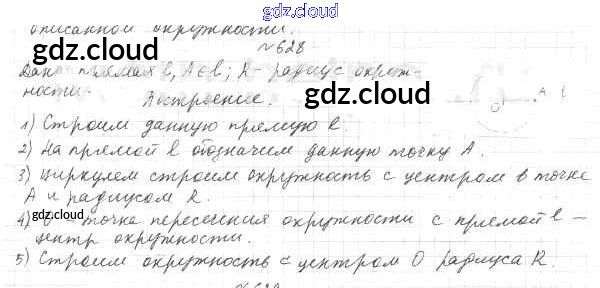 описанной окружности.
gdz.cloud
№628
gdz.cloud
Дано: прямая l, A∈l; R - радиус окруж-
ности.
gdz.cloud
Построение.
gdz.cloud
A l
1) Строим данную прямую l.
2) На прямой l обозначим данную точку A.
3) Циркулем строим окружность с центром в точке
A и радиусом R.
gdz.cloud
4) точка пересечения окружности с прямой l –
центр окружности.
5) Строим окружность с центром O радиуса R.
gdz.cloud